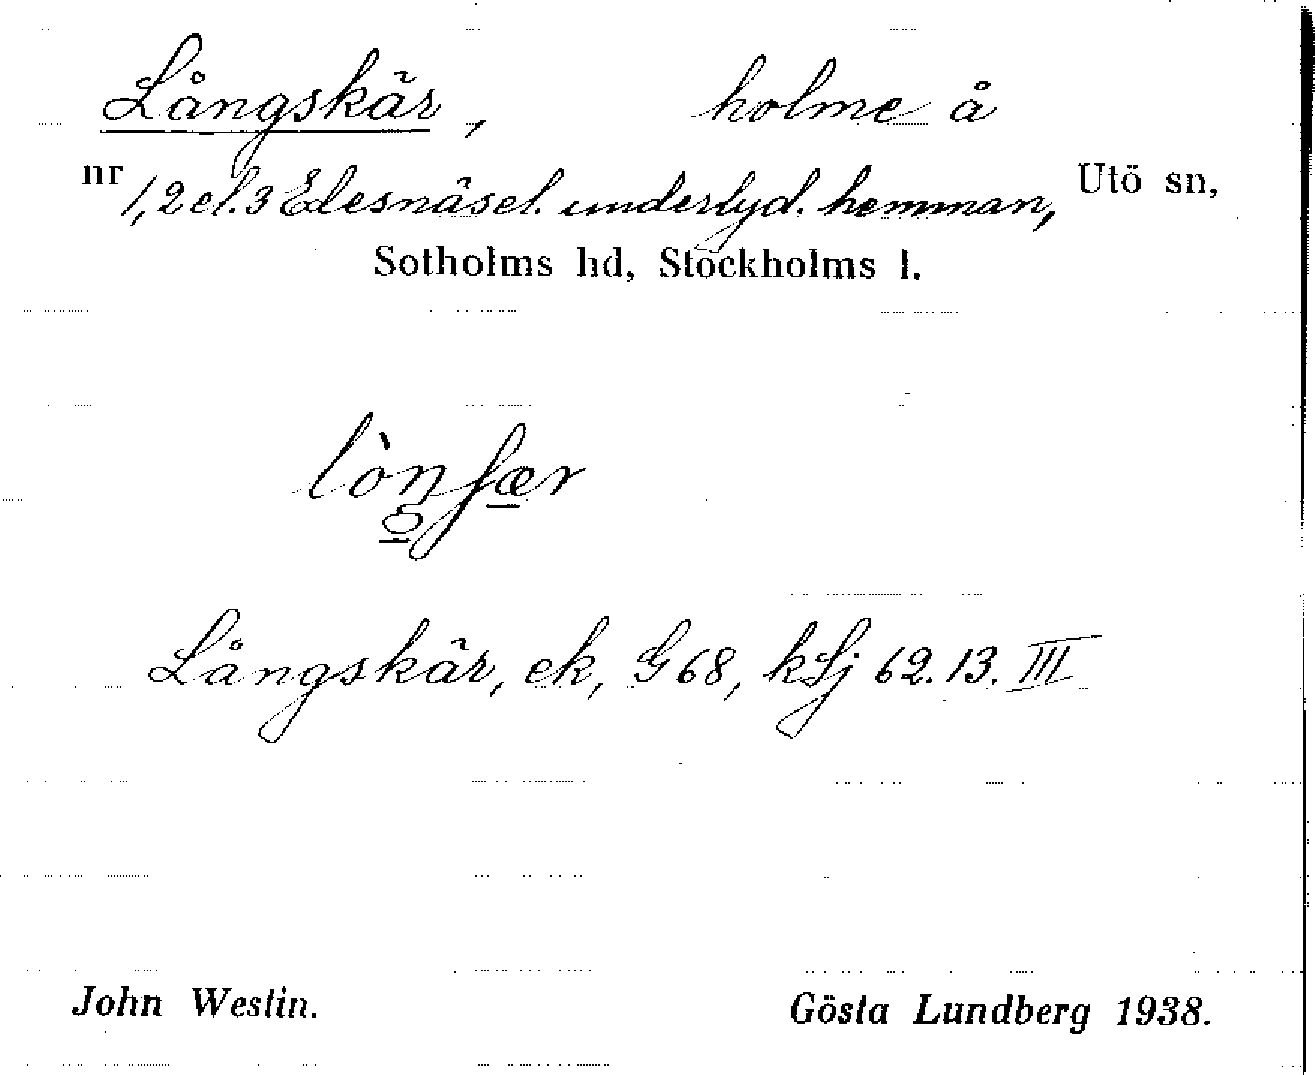 Långskär, holme å
nr 1, 2 el. 3 Edesnäs el. underlyd. hemman, Utö sn,
Sotholms hd, Stockholms l.
Långskär, ek, G 68, kSj 62.13. III
John Westin. Gösta Lundberg 1938.